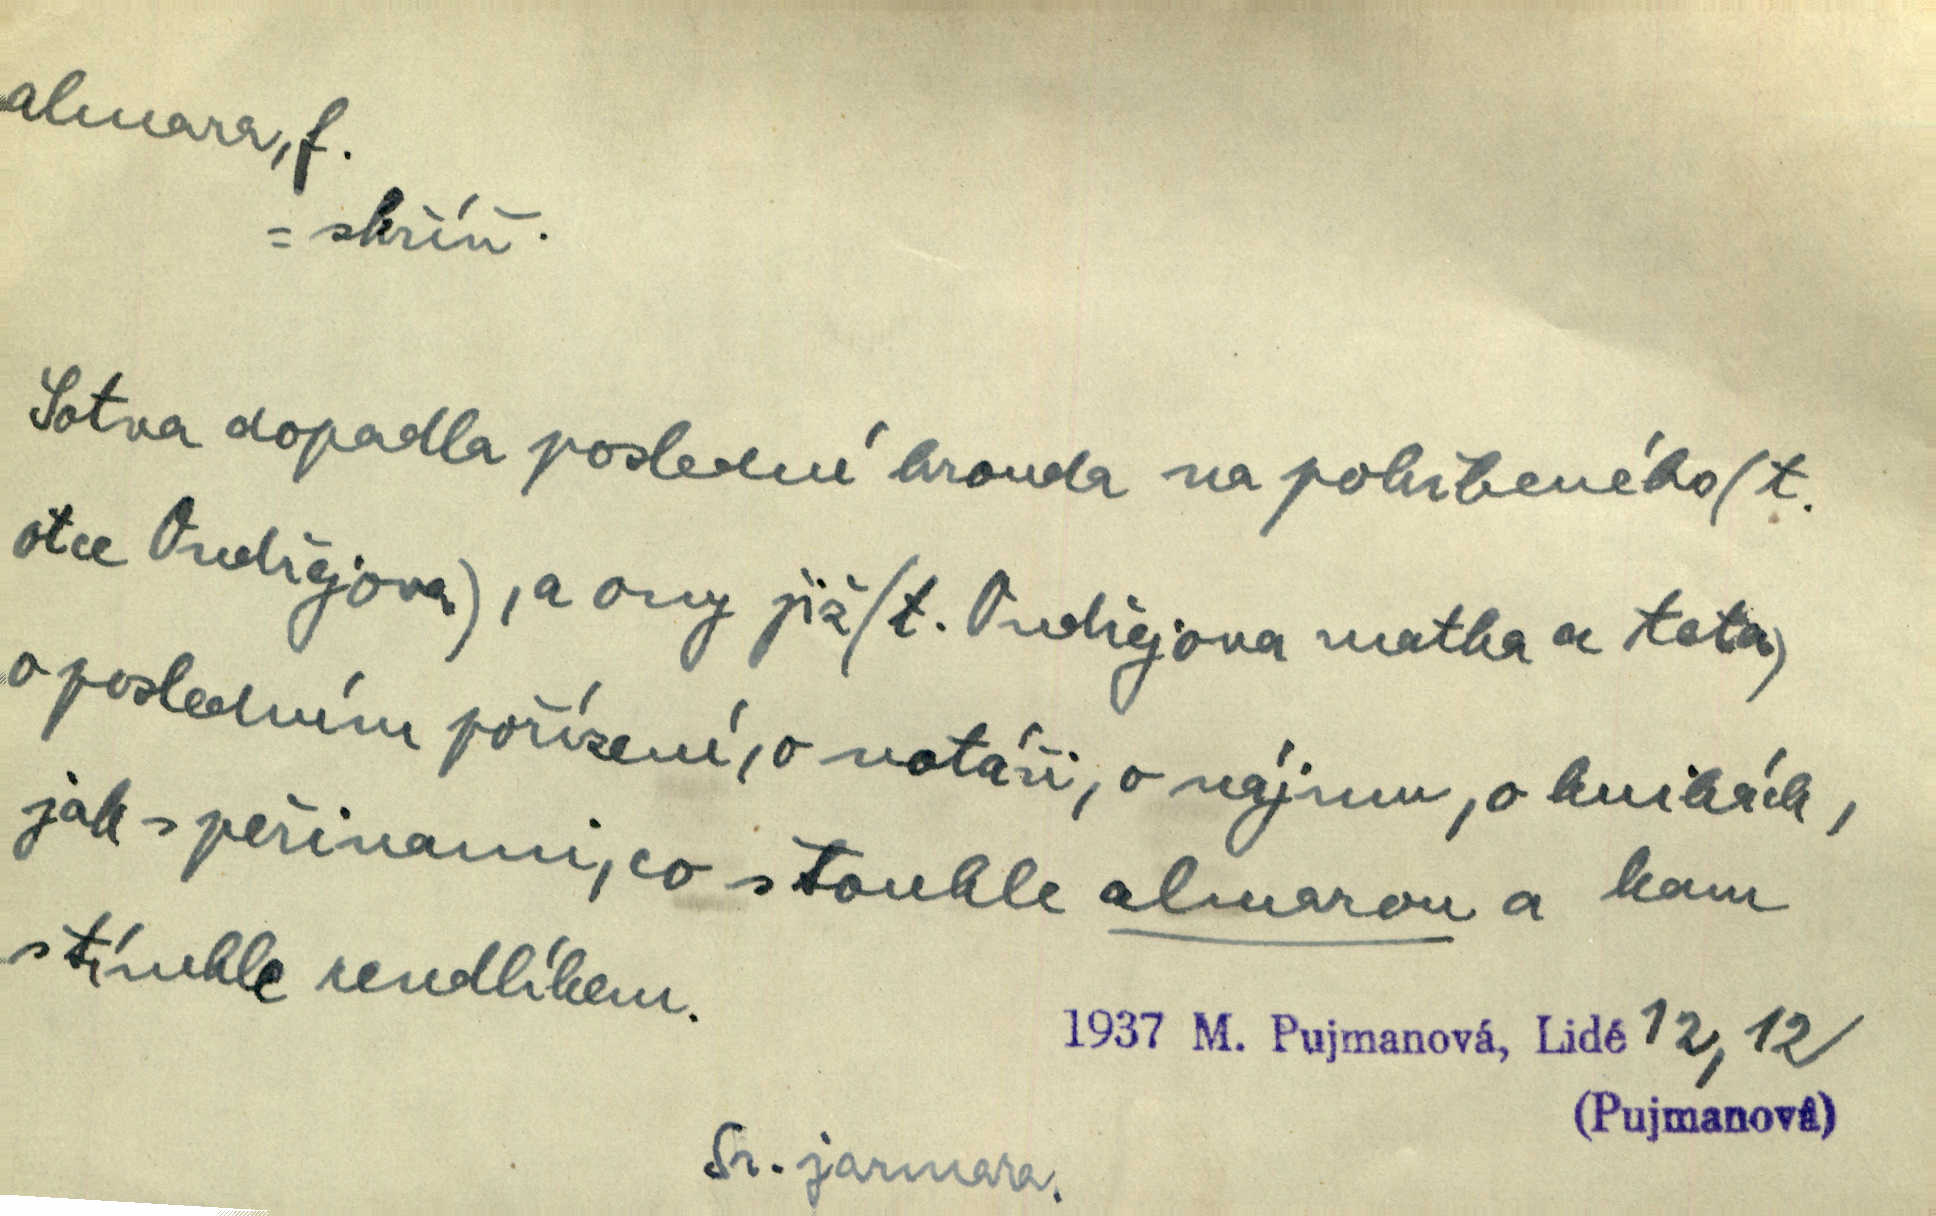 almara, f.
= skříň.
Sotva dopadla poslední hrouda na pohřbeného (t.
otce Ondřejova), a ony již (t. Ondřejova matka a teta)
o posledním pořízení, o notáři, o nájmu, o knihách,
jak s peřinami, co s touhle almarou a kam
s tímhle rendlíkem.
1937 M. Pujmanová, Lidé 12, 12/
(Pujmanová)
Sr. jarmara.